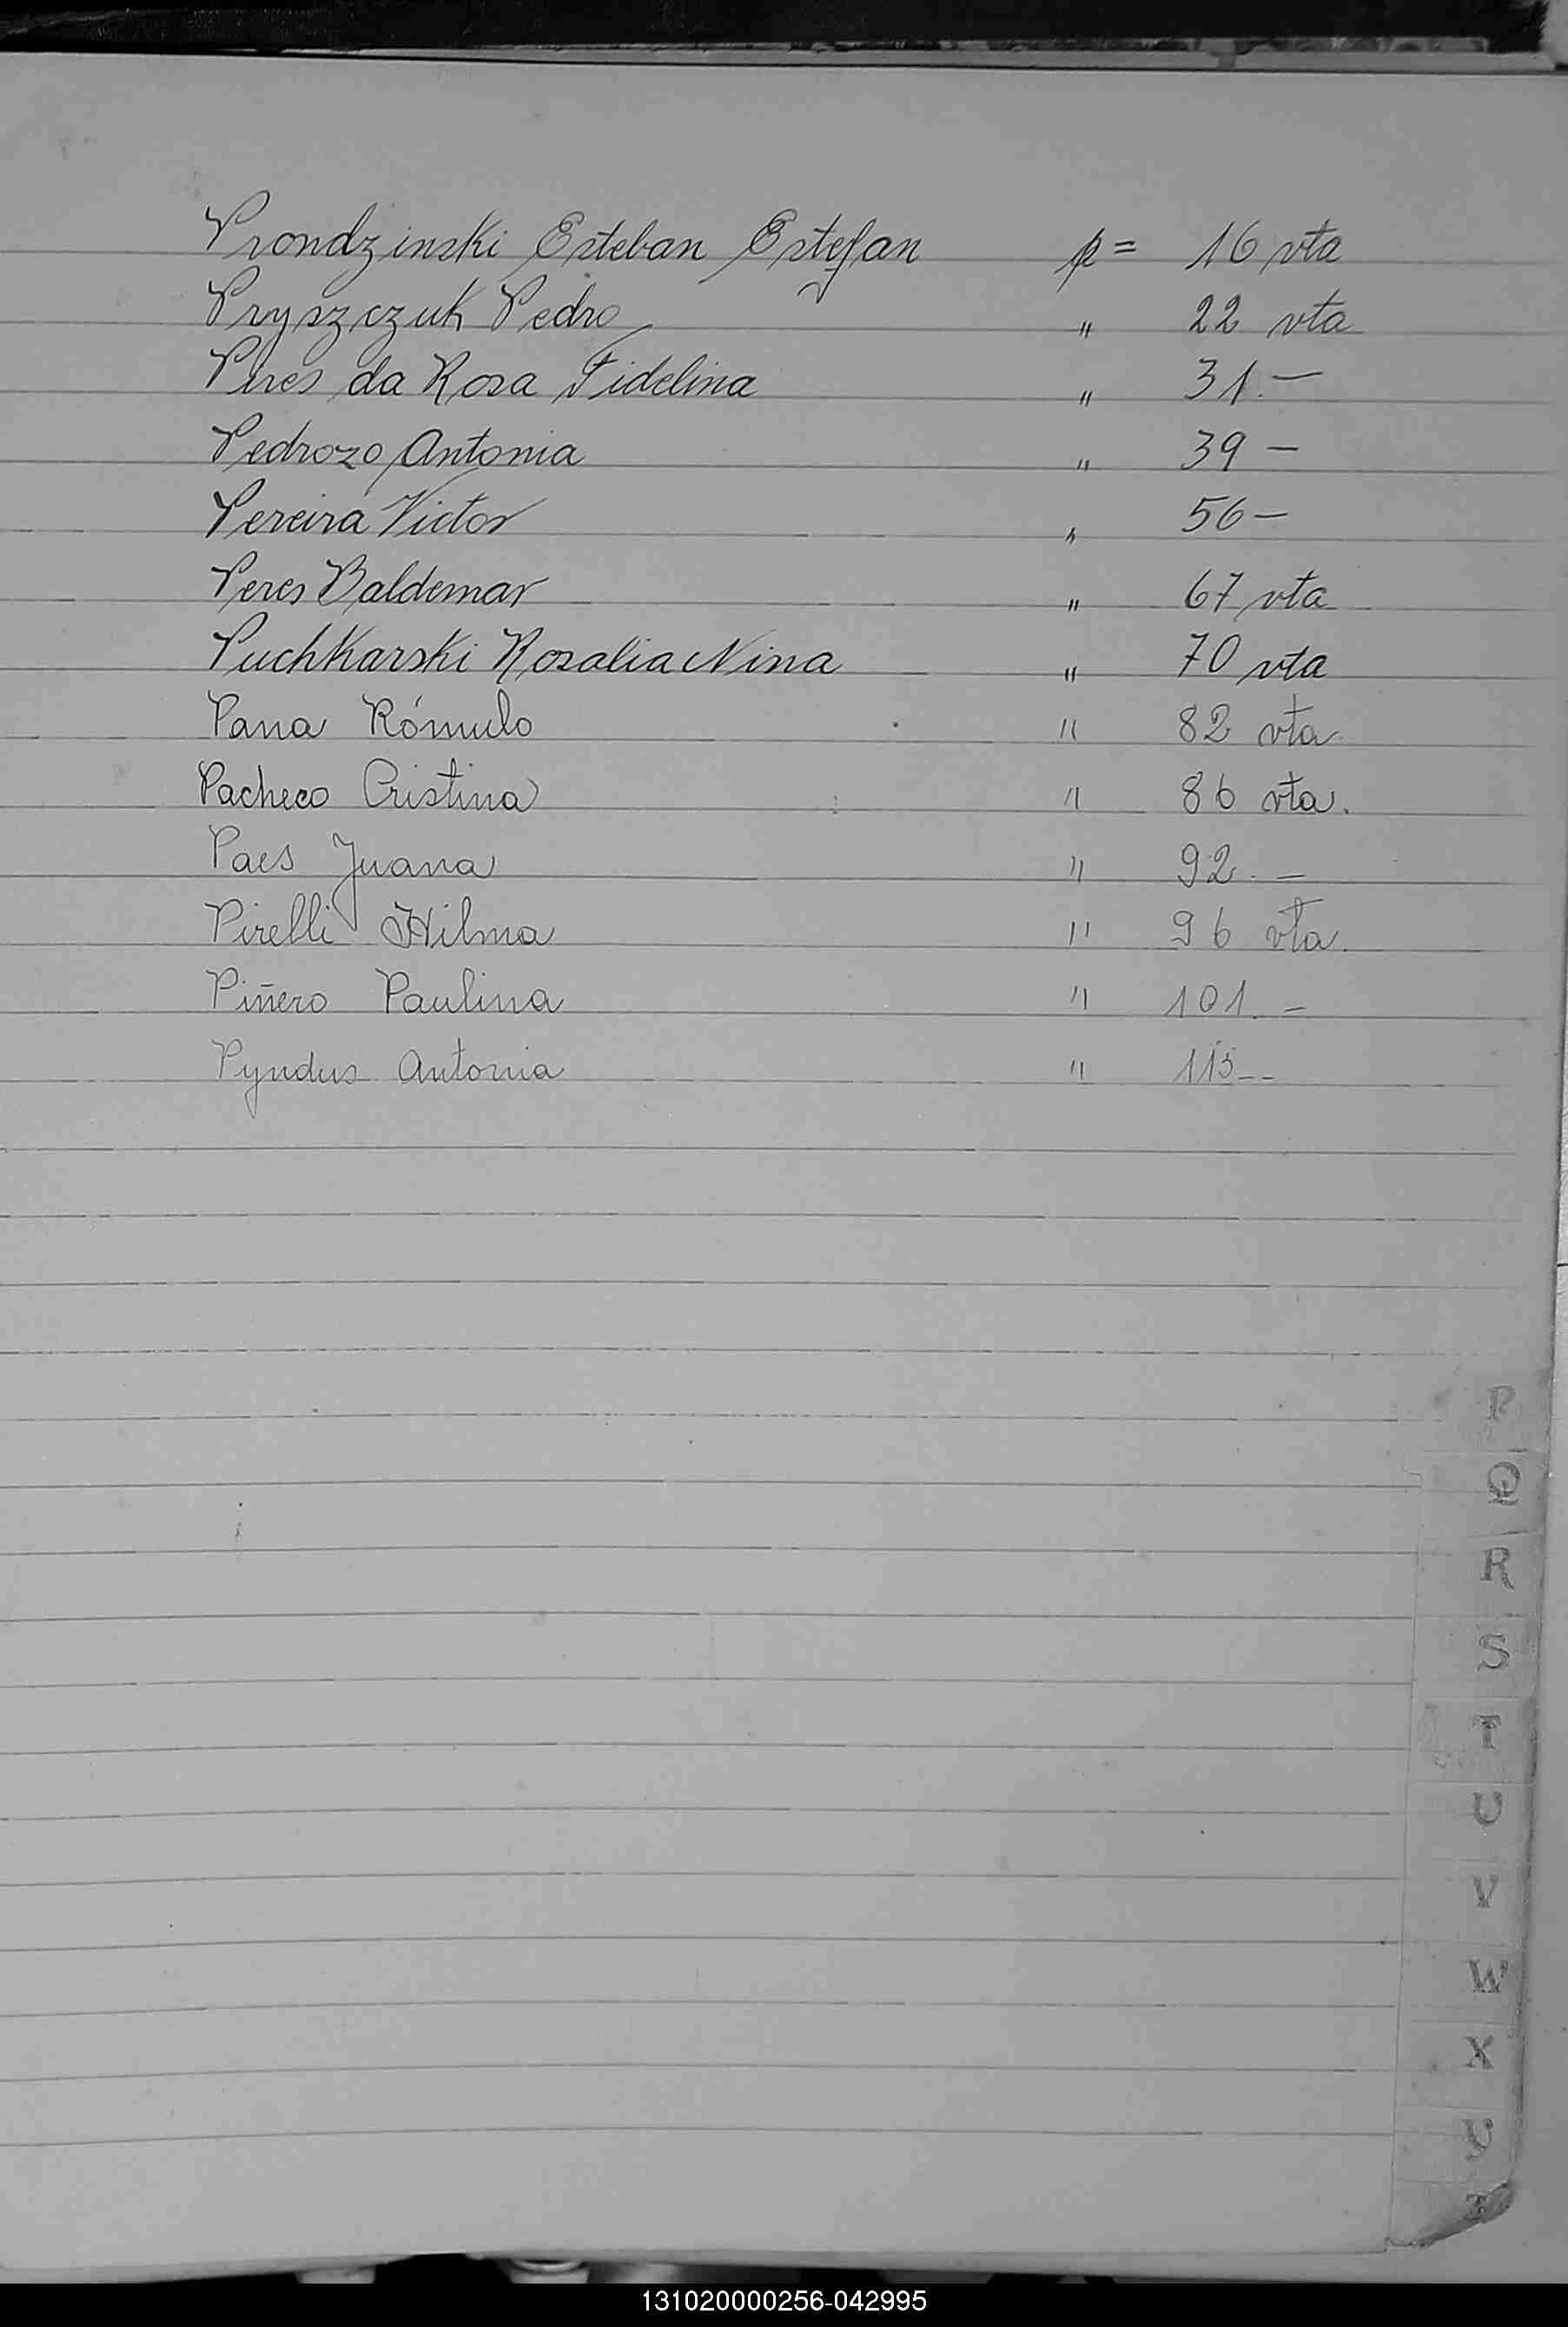 Prondzinski Esteban Estefan p= 16 vta
Pryszczuk Pedro " 22 vta
Pires da Rosa Fidelina " 31.—
Pedrozo Antonia " 39 —
Pereira Victor " 56 —
Peres Baldemar " 67 vta
Puchkarski Rosalia Nina " 70 vta
Pana Rómulo " 82 vta
Pacheco Cristina " 86 vta.
Paes Juana " 92. —
Pirelli Hilma " 96 vta.
Piñero Paulina " 101. —
Pyndus Antonia " 115 --
P
Q
R
S
T
U
V
W
X
Y
Z
131020000256-042995